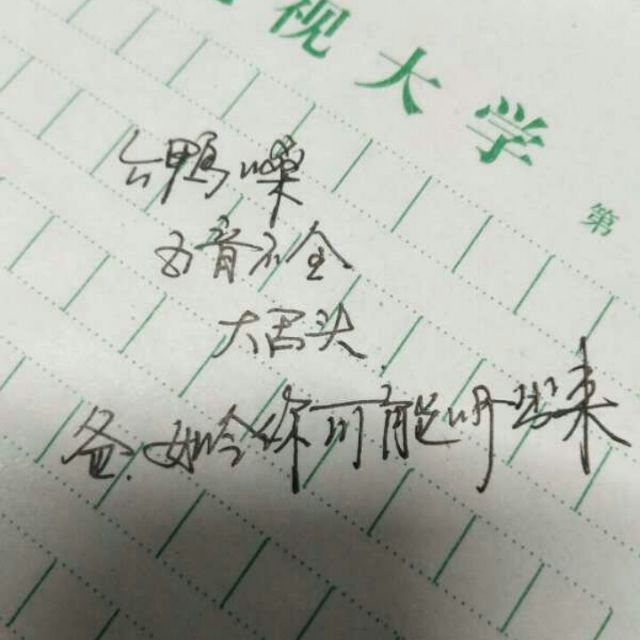 视大学
第
公鸭嗓
五音不全
大舌头
爸.你可能听出来